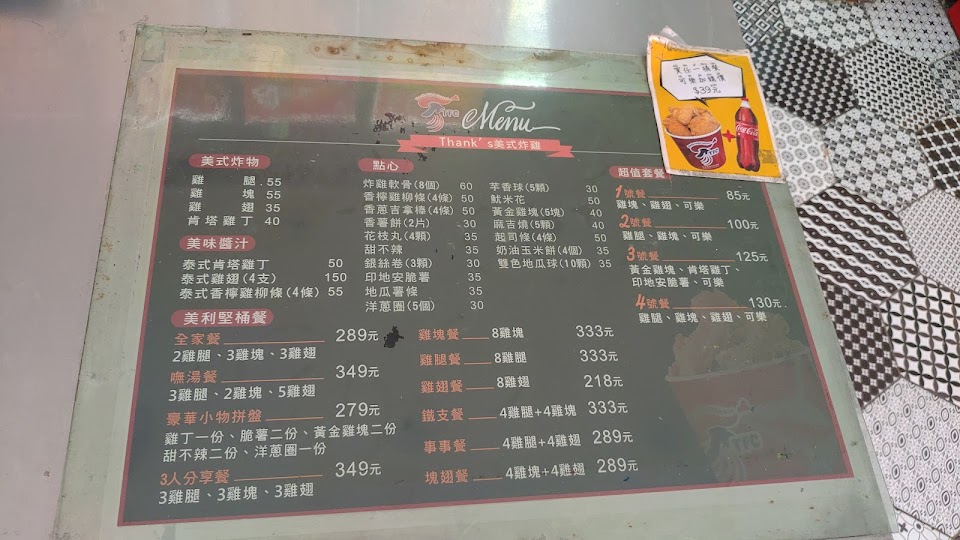 Menu
Thank's美式炸雞
美式炸物
雞腿.55
雞塊 55
雞翅 35
肯塔雞丁 40
美味醬汁
泰式肯塔雞丁 50
泰式雞翅(4支) 150
泰式香檸雞柳條(4條) 55
點心
炸雞軟骨(8個) 60
香檸雞柳條(4條) 50
香蔥吉拿棒(4條) 50
香薯餅(2片) 30
花枝丸(4顆) 35
甜不辣 35
銀絲卷(3顆) 30
印地安脆薯 35
地瓜薯條 35
洋蔥圈(5個) 30
芋香球(5顆) 30
魷米花 50
黃金雞塊(5塊) 40
麻吉燒(5顆) 40
起司條(4條) 50
奶油玉米餅(4個) 35
雙色地瓜球(10顆) 35
超值套餐
1號餐 85元
雞塊、雞翅、可樂
2號餐 100元
雞腿、雞塊、可樂
3號餐 125元
黃金雞塊、肯塔雞丁、
印地安脆薯、可樂
4號餐 130元
雞腿、雞塊、雞翅、可樂
美利堅桶餐
全家餐 289元
2雞腿、3雞塊、3雞翅
嘸湯餐 349元
3雞腿、2雞塊、5雞翅
豪華小物拼盤 279元
雞丁一份、脆薯二份、黃金雞塊二份
甜不辣二份、洋蔥圈一份
3人分享餐 349元
3雞腿、3雞塊、3雞翅
雞塊餐 8雞塊 333元
雞腿餐 8雞腿 333元
雞翅餐 8雞翅 218元
鐵支餐 4雞腿+4雞塊 333元
事事餐 4雞腿+4雞翅 289元
塊翅餐 4雞塊+4雞翅 289元
$39元
+
Coca-Cola